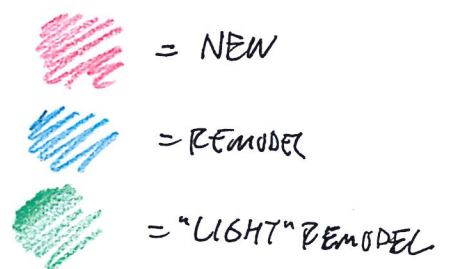 = NEW
= REMODEL
= "LIGHT" REMODEL